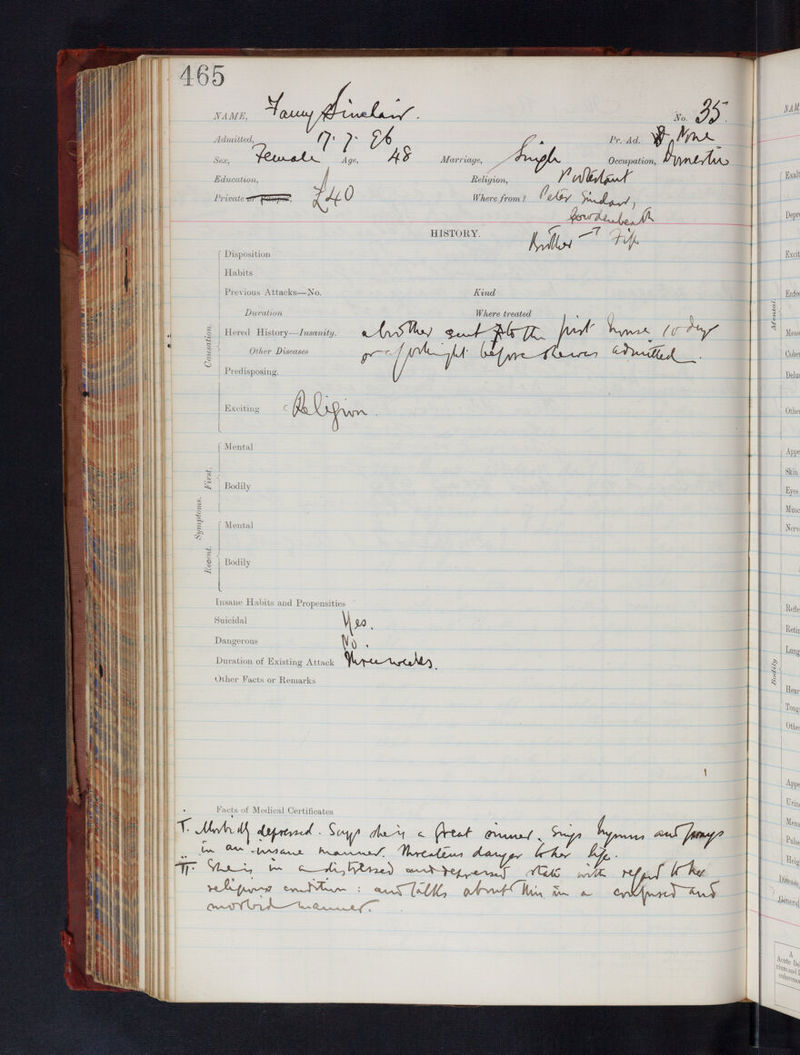 465
NAME, Fanny Sinclair. No. 35.
Admitted, 17. 7. 96 Pr. Ad. None
Sex, Female Age, 48 Marriage, Single Occupation, Domestic
Education, Religion, Protestant
Private or Pauper, £40 Where from? Peter Sinclair,
Cowdenbeath
HISTORY. Brother Fife
Disposition
Habits
Previous Attacks—No. Kind
Duration Where treated
Hered History—Insanity. a brother sent to the first house 10 days
Other Diseases or a fortnight before she was admitted.
Predisposing.
Exciting Religion.
Causation.
Mental
Bodily
First.
Mental
Bodily
Recent.
Symptoms.
Insane Habits and Propensities
Suicidal Yes.
Dangerous No.
Duration of Existing Attack Three weeks.
Other Facts or Remarks
Facts of Medical Certificates
I. Morbidly depressed. Says she is a great sinner. Sings hymns and prays
in an insane manner. Threatens danger to her life.
II. She is in a distressed and depressed state with regard to her
religious condition: and talks about this in a confused and
morbid manner.
NAM
Mental.
Bodily